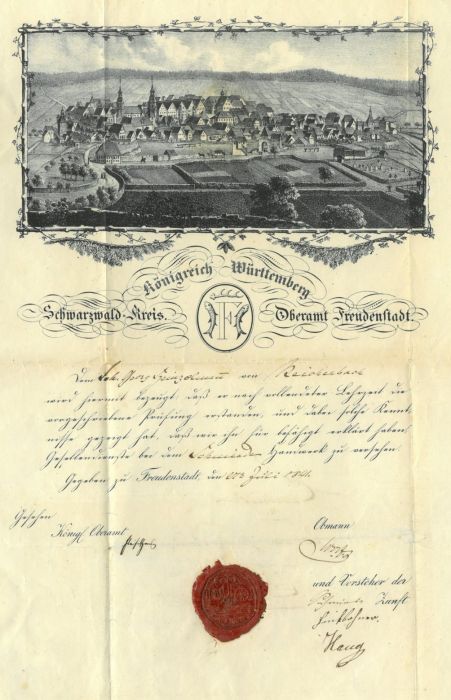 Königreich Württemberg
Schwarzwald Kreis. Oberamt Freudenstadt.
F
Dem Joh. Georg von Reichenbach
wird hiermit bezeugt, daß er nach vollendeter Lehrzeit die
vorgeschriebene Prüfung erstanden, und dabei solche Kennt-
nisse gezeigt hat, daß wir ihn für befähigt erklärt haben,
Gesellendienste bei dem Handwerk zu versehen.
Gegeben zu Freudenstadt, den Juli 1841.
Gesehen
Königl. Oberamt
Obmann
und Vorsteher der
Zunft
Haug